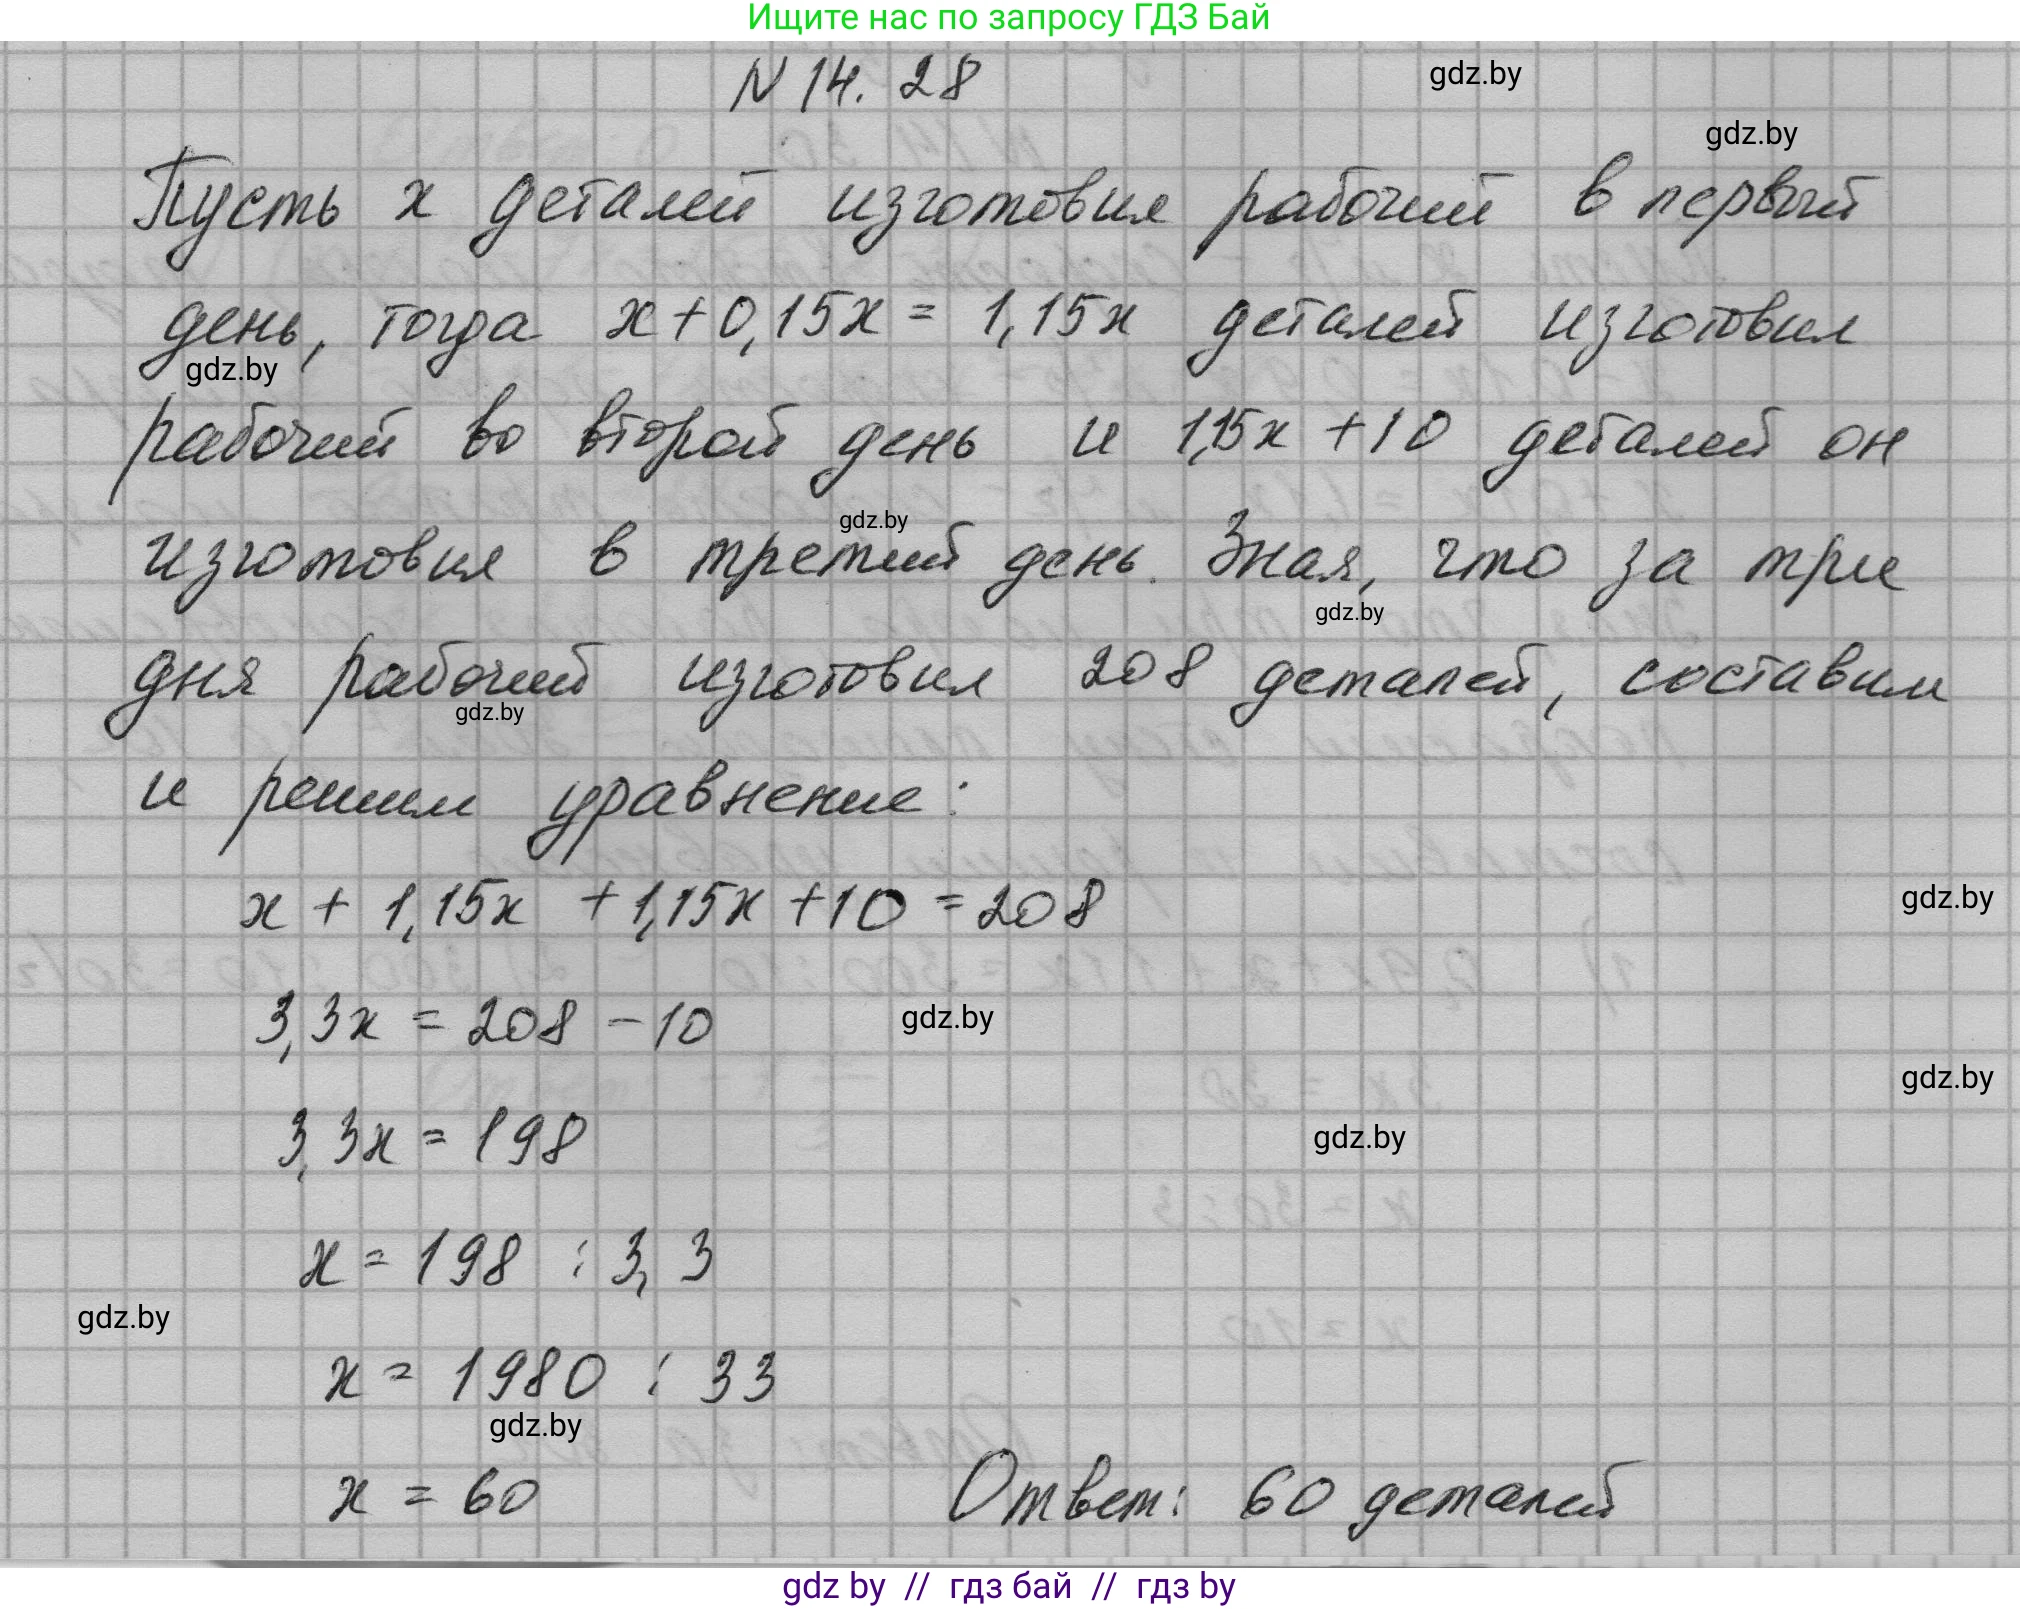 Ищите нас по запросу ГДЗ Бай
N 14. 28
gdz.by
gdz.by
Пусть x деталей изготовил рабочий в первый
день, тогда x+0,15x = 1,15x деталей изготовил
gdz.by
рабочий во второй день и 1,15x +10 деталей он
gdz.by
изготовил в третий день. Зная, что за три
gdz.by
дня рабочий изготовил 208 деталей, составим
gdz.by
и решим уравнение:
x + 1,15x +1,15x +10 =208
gdz.by
3,3x = 208 -10
gdz.by
gdz.by
3,3x = 198
gdz.by
x = 198 : 3,3
gdz.by
x = 1980 : 33
gdz.by
x = 60 Ответ: 60 деталей
gdz by // гдз бай // гдз by